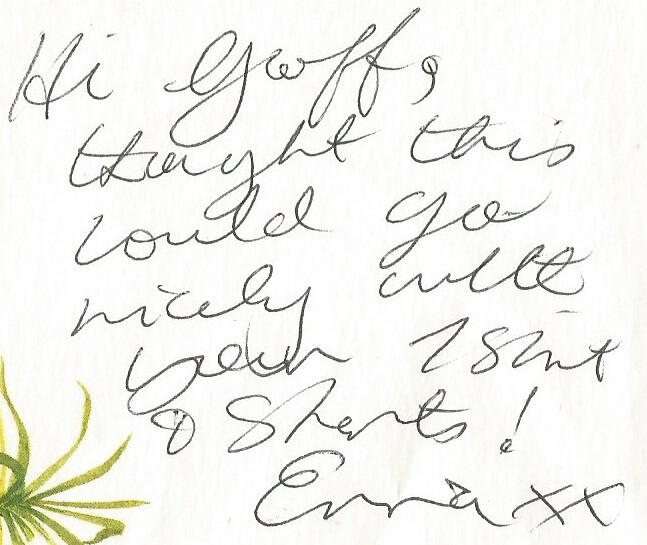 Hi Geoff,
thought this
could go
nicely with
your T Shirt
& Shorts!
xx